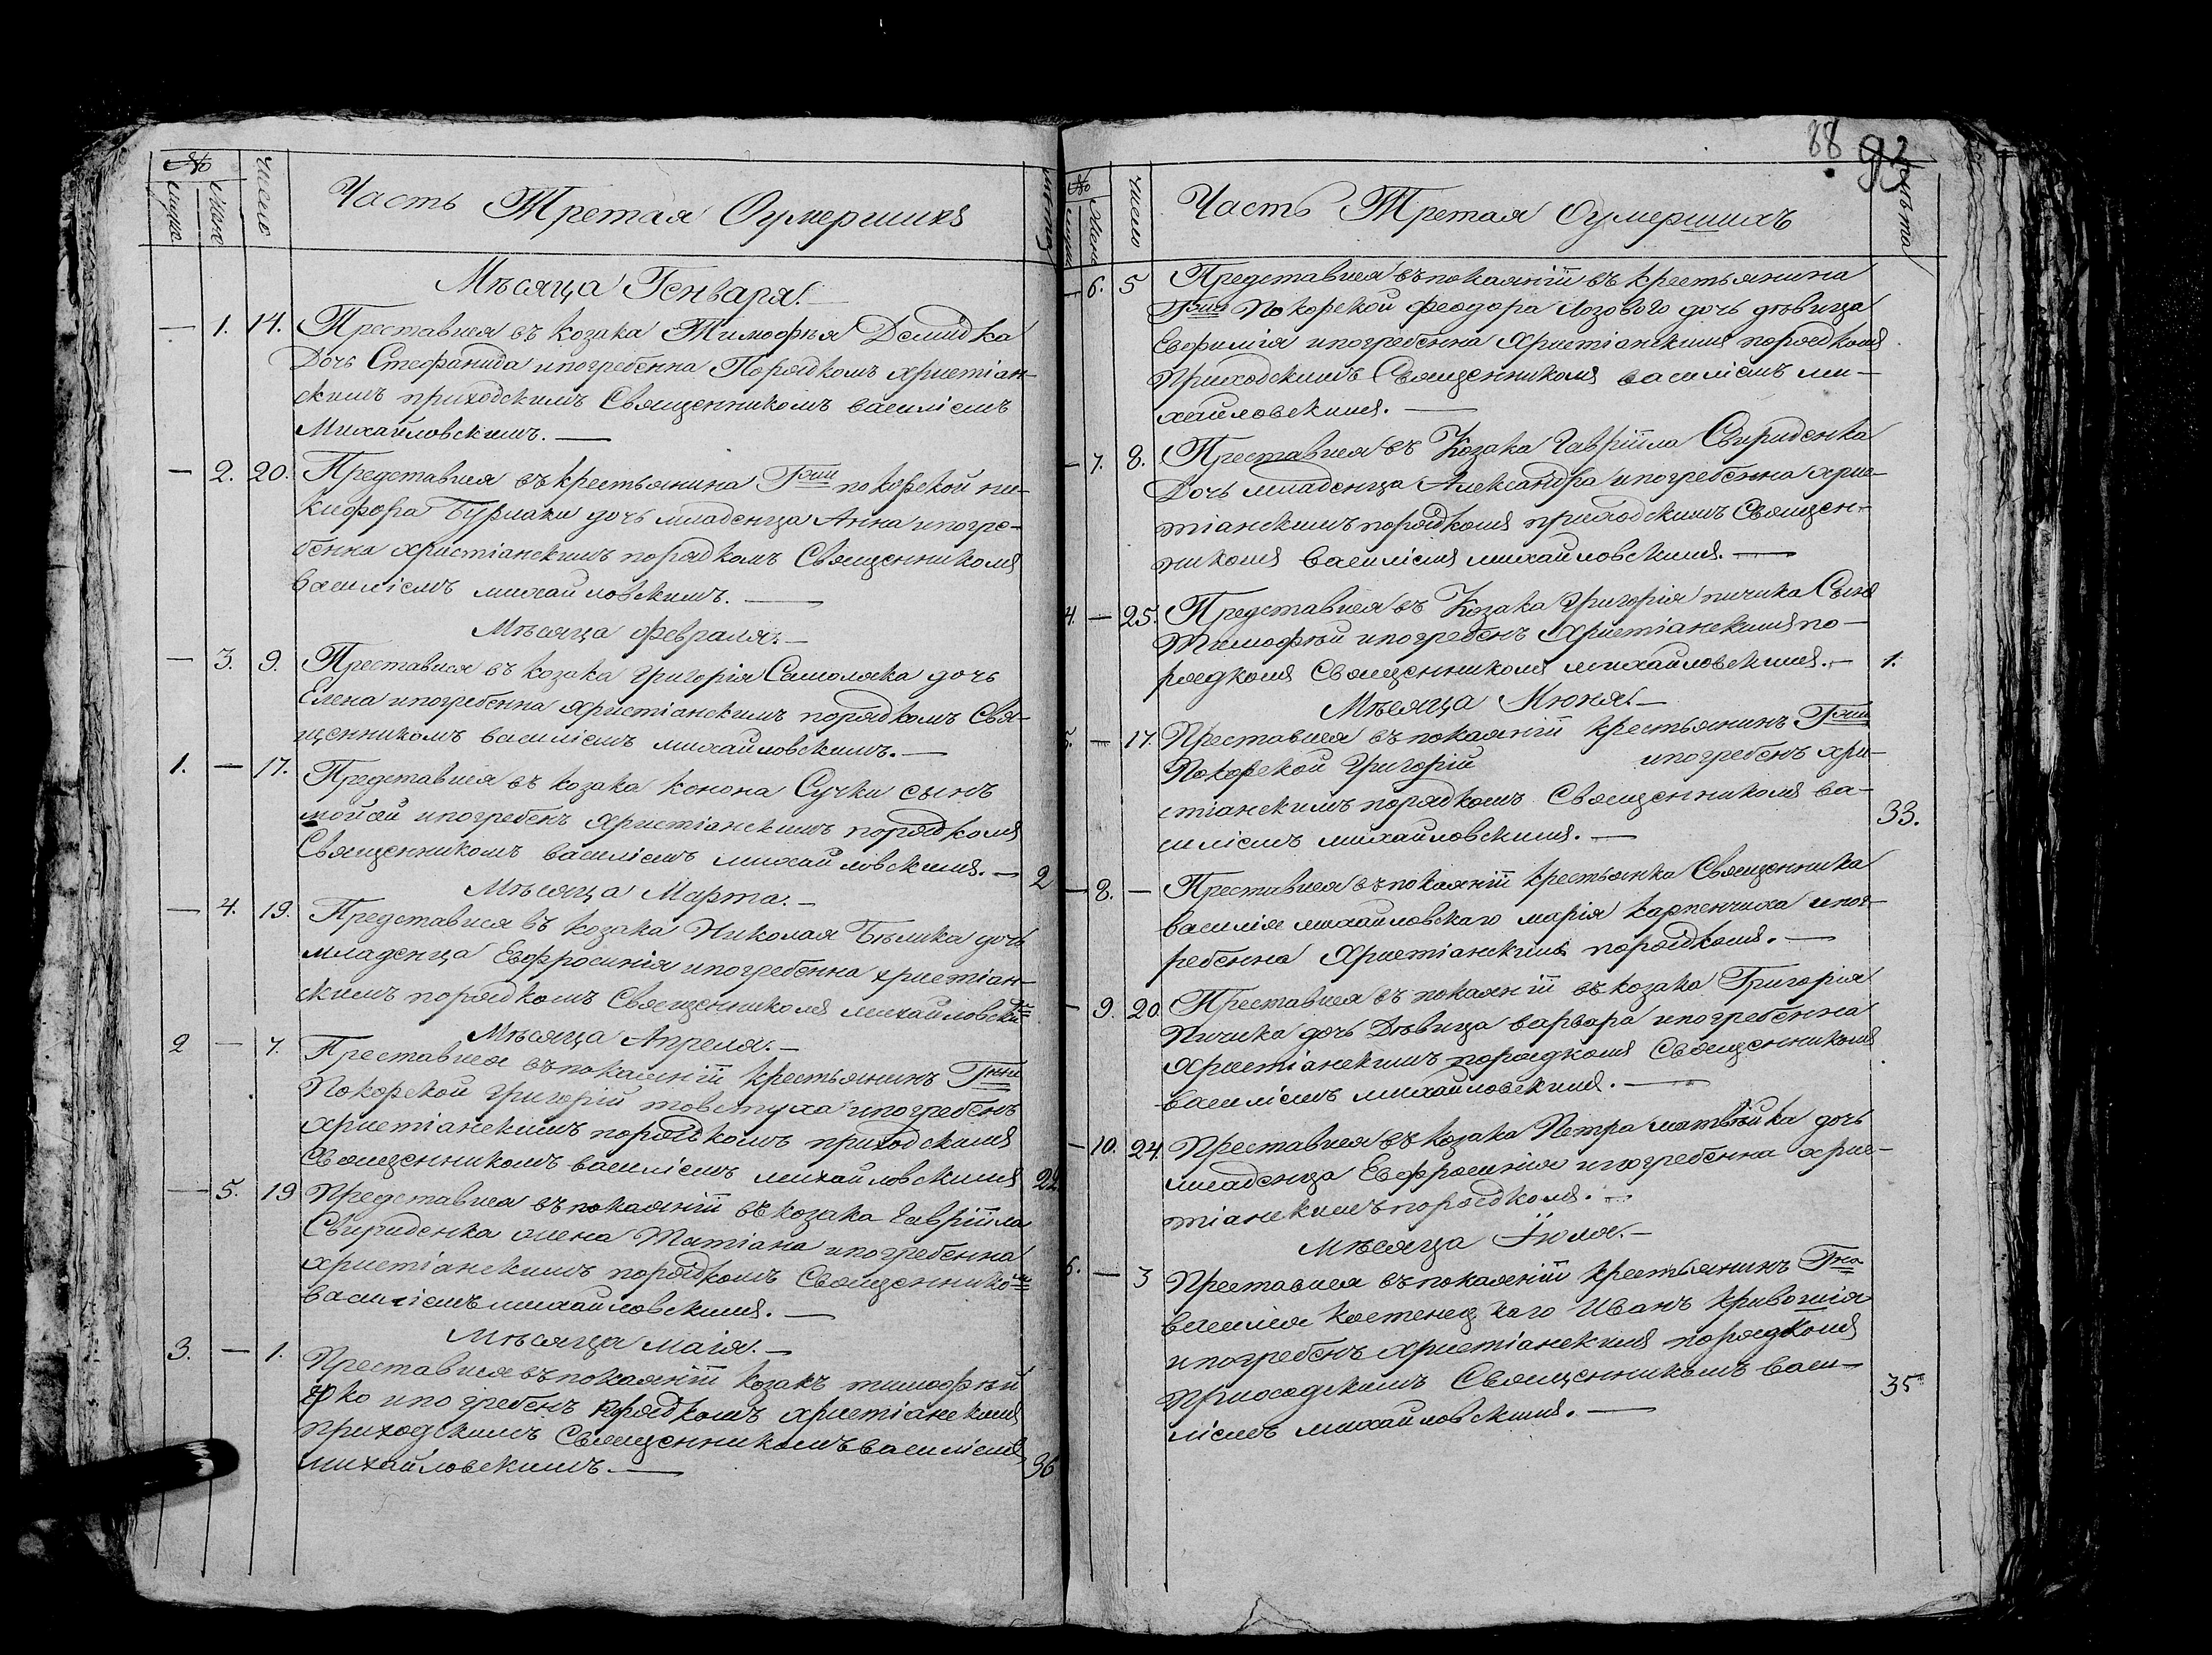 №
число
мужеска
женска
Часть Третая Оумершихъ
лѣта
Мѣсяца Генваря.
— 1. 14. Преставися въ козака Тимофѣя Демидка
Дочь Стефанида ипогребенна Порядкомъ христіан-
скимъ приходскимъ Священникомъ василіемъ
Михайловскимъ.
— 2. 20. Представися въ крестьянина Гжи покорской ни-
кифора Бурлаки дочь младенца Анна ипогре-
бенна христіанскимъ порядкомъ Священникомъ
василіемъ михайловскимъ.
Мѣсяца февраля.
— 3. 9. Преставися въ козака григорія Самоляка дочь
Елена ипогребенна христіанскимъ порядкомъ Свя-
щенникомъ василіемъ михайловскимъ.
1. — 17. Представися въ козака конона Сучки сынъ
мойсй ипогребенъ христіанскимъ порядкомъ
Священникомъ василіемъ михайловскимъ. 2
Мѣсяца Марта.
— 4. 19. Представися въ козака Николая Бѣлика дочь
младенца Евфросинія ипогребенна христіан-
скимъ порядкомъ Священникомъ михайловски
Мѣсяца Апреля.
2 — 7. Преставися въ покаяніи крестьянинъ Гжи
Покорской григорій товстуха ипогребенъ
христіанскимъ порядкомъ приходскимъ
Священникомъ василіемъ михайловскимъ 22
— 5. 19 Представися въ покаяніи въ козака гавріила
Свириденка жена Татіана ипогребенна
христіанскимъ порядкомъ Священнико
василіемъ михайловскимъ.
Мѣсяца маія.
3. — 1. Преставися въ покаяніи козакъ тимофѣй
ипогребенъ порядкомъ христіанскимъ
приходскимъ Священникомъ василіемъ
михайловскимъ. 36
88 92
№
число
Часть Третая Оумершихъ
лѣта
— 6. 5 Представися въ покаяніи въ крестьянина
Гжи Покорской феодора лозового дочь дѣвица
Евфимія ипогребенна христіанскимъ порядкомъ
Приходскимъ Священникомъ василіемъ ми-
хайловскимъ.
— 7. 8. Преставися въ Козака гавріила Свириденка
Дочь младенца Александра ипогребенна хрис-
тіанскимъ порядкомъ приходскимъ Священ-
никомъ василіемъ михайловскимъ.
4. — 25. Представися въ Козака григорія пичика Сынъ
Тимофѣй ипогребенъ христіанскимъ по-
рядкомъ Священникомъ михайловскимъ. 1.
Мѣсяца Июня.
5. — 17. Преставися въ покаяніи крестьянинъ Гжи
Покорской григорій ипогребенъ хри-
стіанскимъ порядкомъ Священникомъ ва-
силіемъ михайловскимъ. 33.
— 8. — Преставися въ покаяніи крестьянка Священника
василія михайловскаго марія карпенчиха ипог-
ребенна христіанскимъ порядкомъ.
— 9. 20. Преставися въ покаяніи въ козака Григорія
Пичика дочь Дѣвица варвара ипогребенна
христіанскимъ порядкомъ Священникомъ
василіемъ михайловскимъ.
— 10. 24. Преставися въ козака Петра матвѣйка дочь
младенца Евфросинія ипогребенна хрис-
тіанскимъ порядкомъ.
Мѣсяца Іюля.
6. — 3 Преставися въ покаяніи крестьянинъ Гна
василія костенецкаго Иванъ кривошія
ипогребенъ христіанскимъ порядкомъ
приходскимъ Священникомъ васи-
ліемъ михайловскимъ. 35